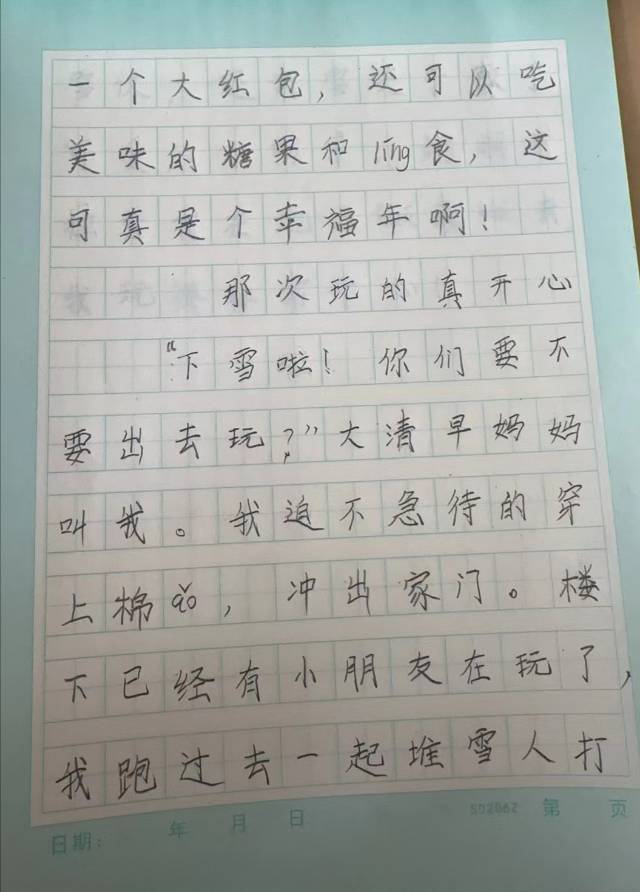 一个大红包，还可以吃
美味的糖果和líng食，这
可真是个幸福年啊！
那次玩的真开心
“下雪啦！你们要不
要出去玩？”大清早妈妈
叫我。我追不急待的穿
上棉ǎo，冲出家门。楼
下已经有小朋友在玩了，
我跑过去一起堆雪人打
SD2062 第 页
日期： 年 月 日